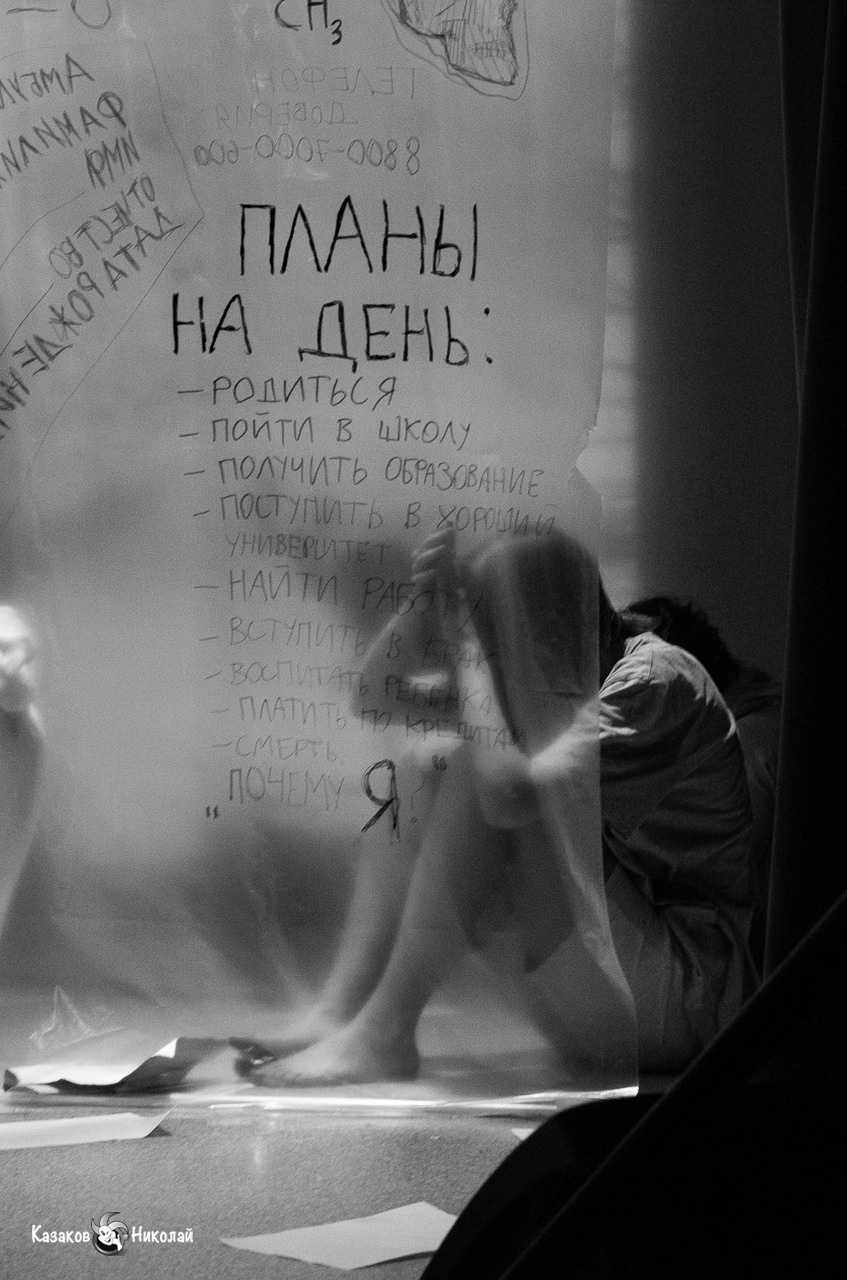 CH₃
АМБУЛ
ФАМИЛИ
ИМЯ
ОТЧЕСТВО
ДАТА РОЖДЕНИ
ТЕЛЕФОН
ДОВЕРИЯ
8800-7000-600
ПЛАНЫ
НА ДЕНЬ:
- РОДИТЬСЯ
- ПОЙТИ В ШКОЛУ
- ПОЛУЧИТЬ ОБРАЗОВАНИЕ
- ПОСТУПИТЬ В ХОРОШИЙ
УНИВЕРСИТЕТ
- НАЙТИ РАБОТУ
- ВСТУПИТЬ В БРАК
- ВОСПИТАТЬ РЕБЕНКА
- ПЛАТИТЬ ПО КРЕДИТАМ
- СМЕРТЬ.
"ПОЧЕМУ Я?"
Казаков Николай